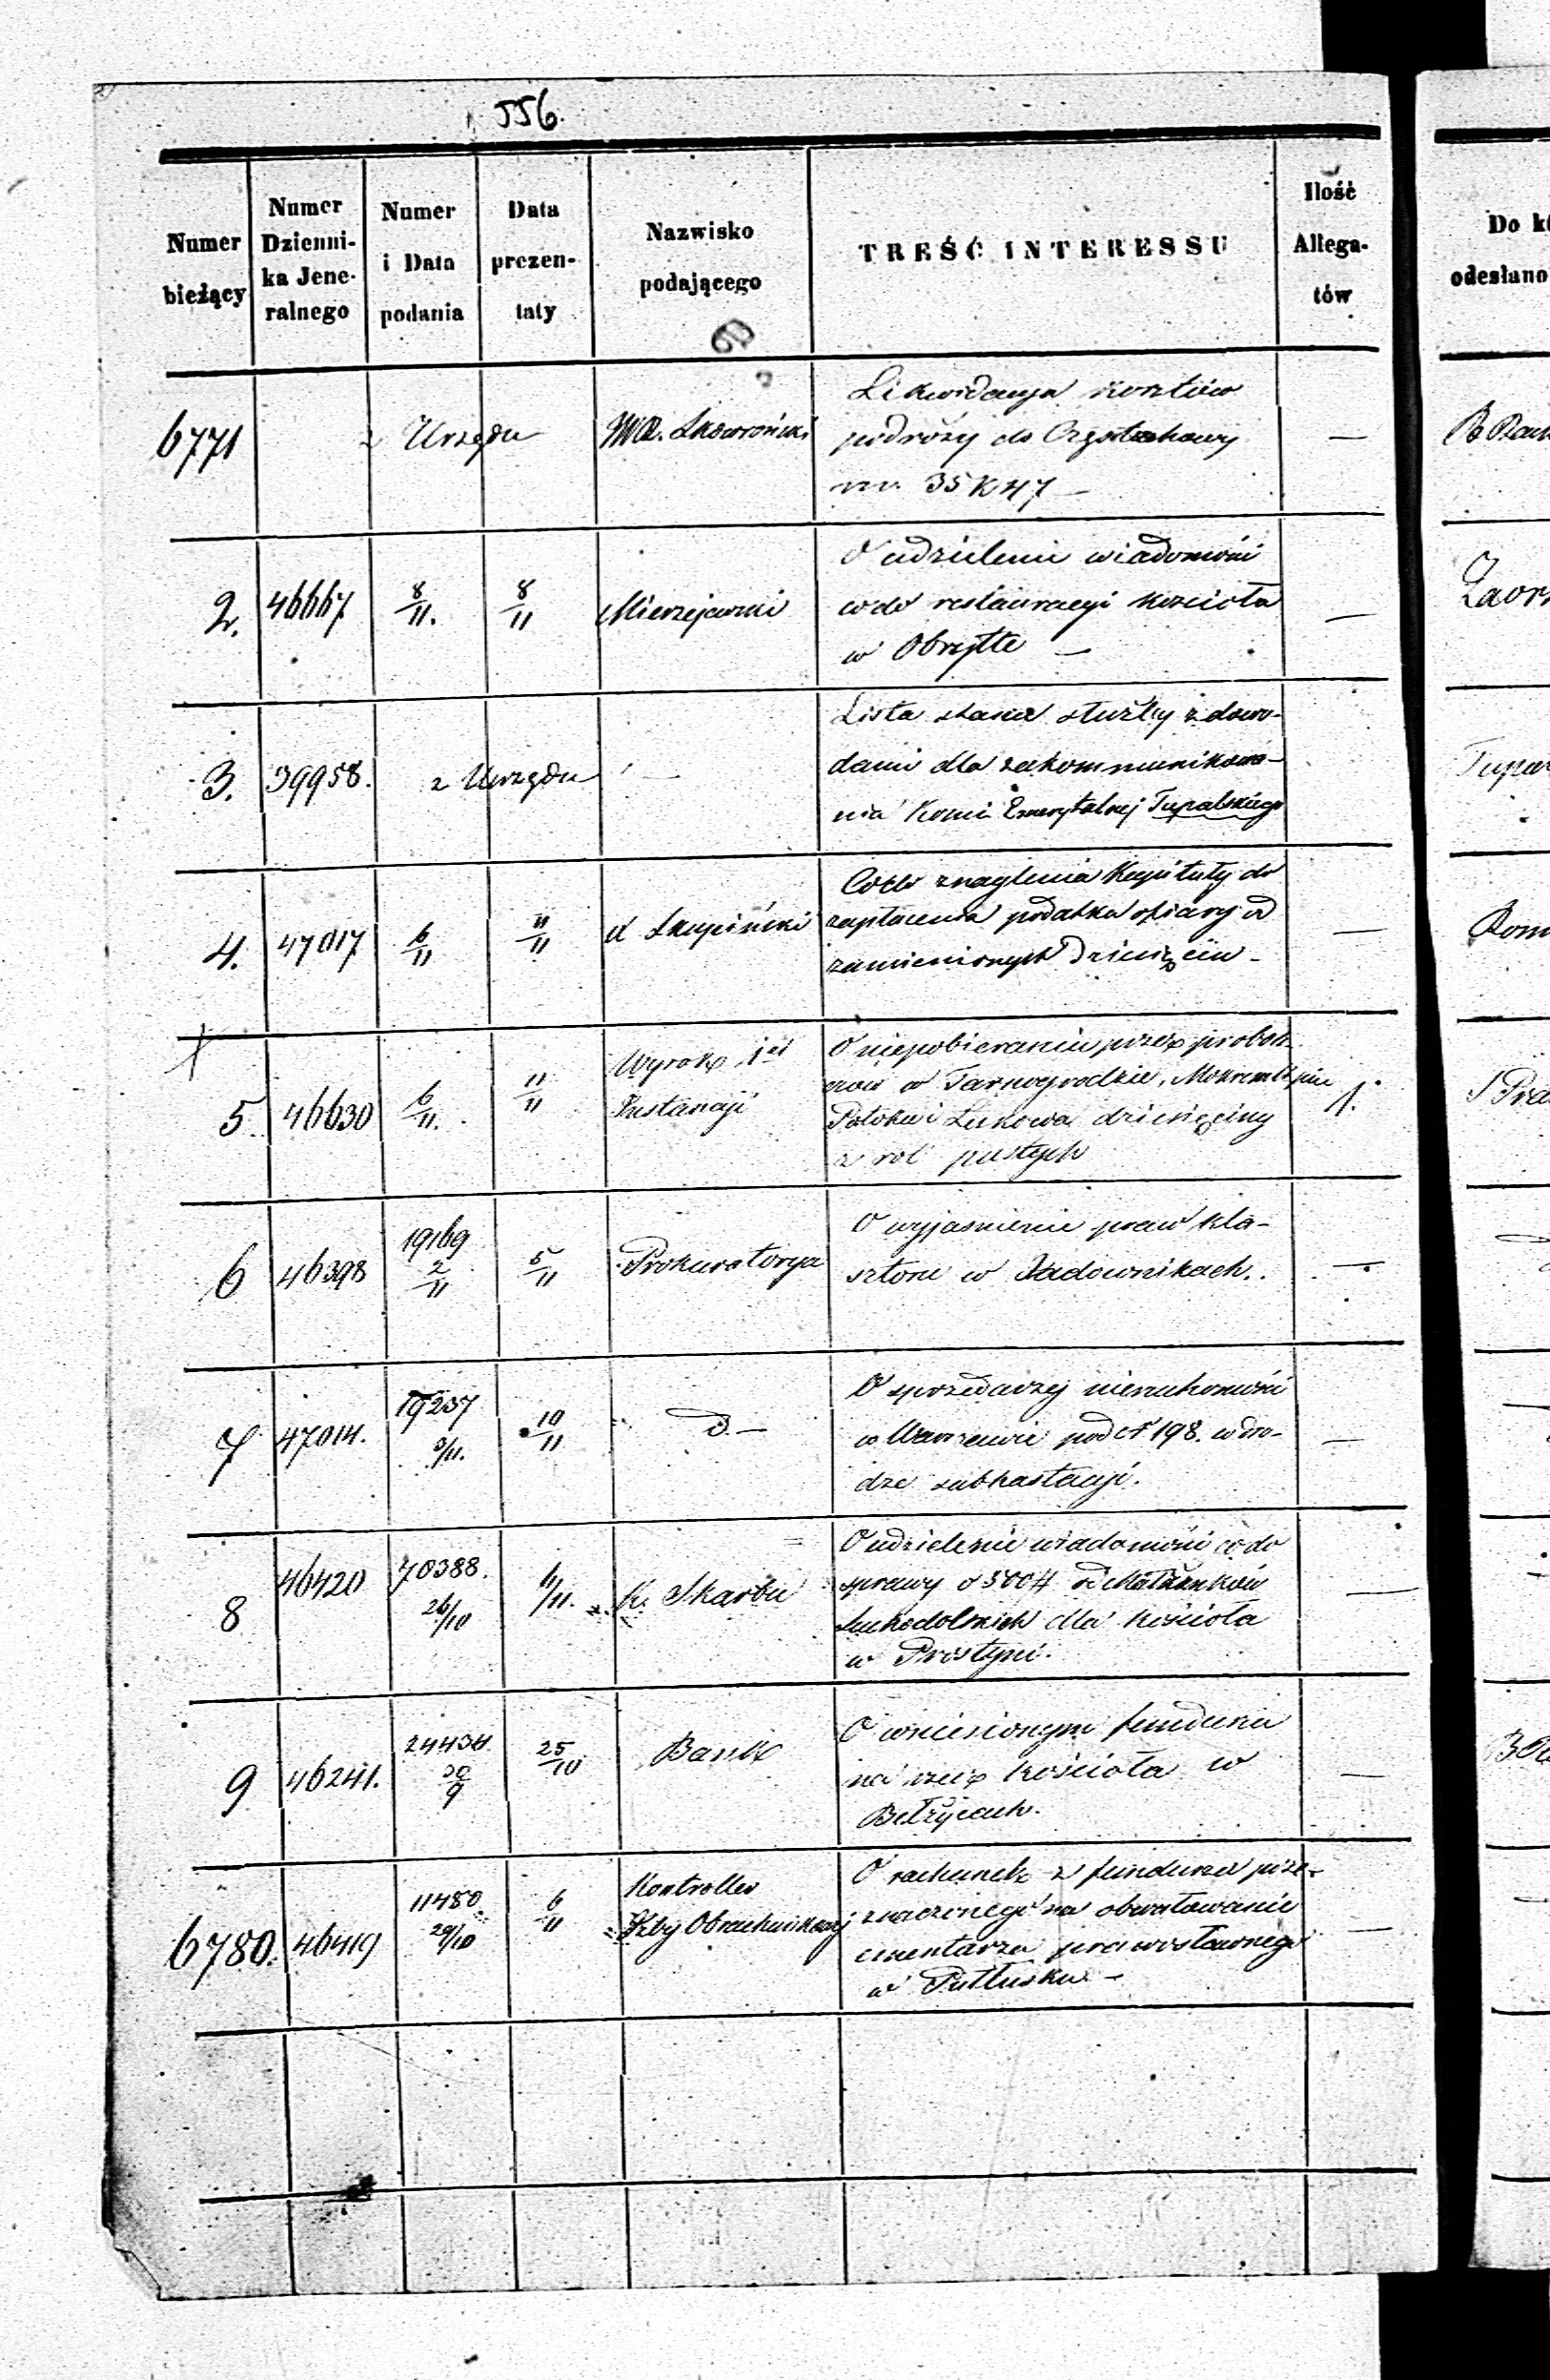 556.
Numer bieżący
Numer Dzienni-ka Jene-ralnego
Numer i Data podania
Data prezen-taty
Nazwisko podającego
TREŚĆ INTERESSU
Ilość Allega-tów
Do
odesłano
6771 z Urzędu Skowroński
Likwidacya kosztów
podróży do Częstochowy
rsr. 35 k 47 —
2. 46667 8/11. 8/11 Mierzejewski —
O udzielenie wiadomości
co do restauracyi kościoła
w Obrytte —
3. 39958. z Urzędu —
Lista stanu służby z dowo-
dami dla zakommunikowa-
nia Komi Emerytalnej Tupalskiego
4. 47017 6/11 11/11 Skupiński —
znaglenia Kapituły do
zapłacenia podatku ofiary od
zamienionych dziesięcin -
5 46630 6/11. 11/11 Wyrok 1ej
Instancyi 1.
O niepobieraniu przez probosz-
czów w Tarnogrodzie,
Potoku i Łukowa dziesięciny
z rol pustych
6 46398 19169 2/11 5/11 Prokuratorya —
O wyjasnienie praw kla-
sztoru w Jadownikach.
7 47014. 19237 3/11. 10/11 d. — —
O sprzedaży nieruchomości
w Warszawie pod N 198. w dro-
dze subhastacyi.
8 46420 70388. 26/10 6/11. K. Skarbu —
O udzielenie wiadomości co do
sprawy o 500 # od Małżonków
Suchodolskich dla kościoła
w Prostyni.
9 46241. 24434 30/9 25/10 Bank —
O wniesionym funduszu
na rzecz kościoła w
Bełżycach.
6780. 46419 11480 29/10 6/11 Kontroller
Izby Obrachunkowej —
O rachunek z funduszu prze-
znaczonego na obwałowanie
cmentarza prawosławnego
w Pułtusku —